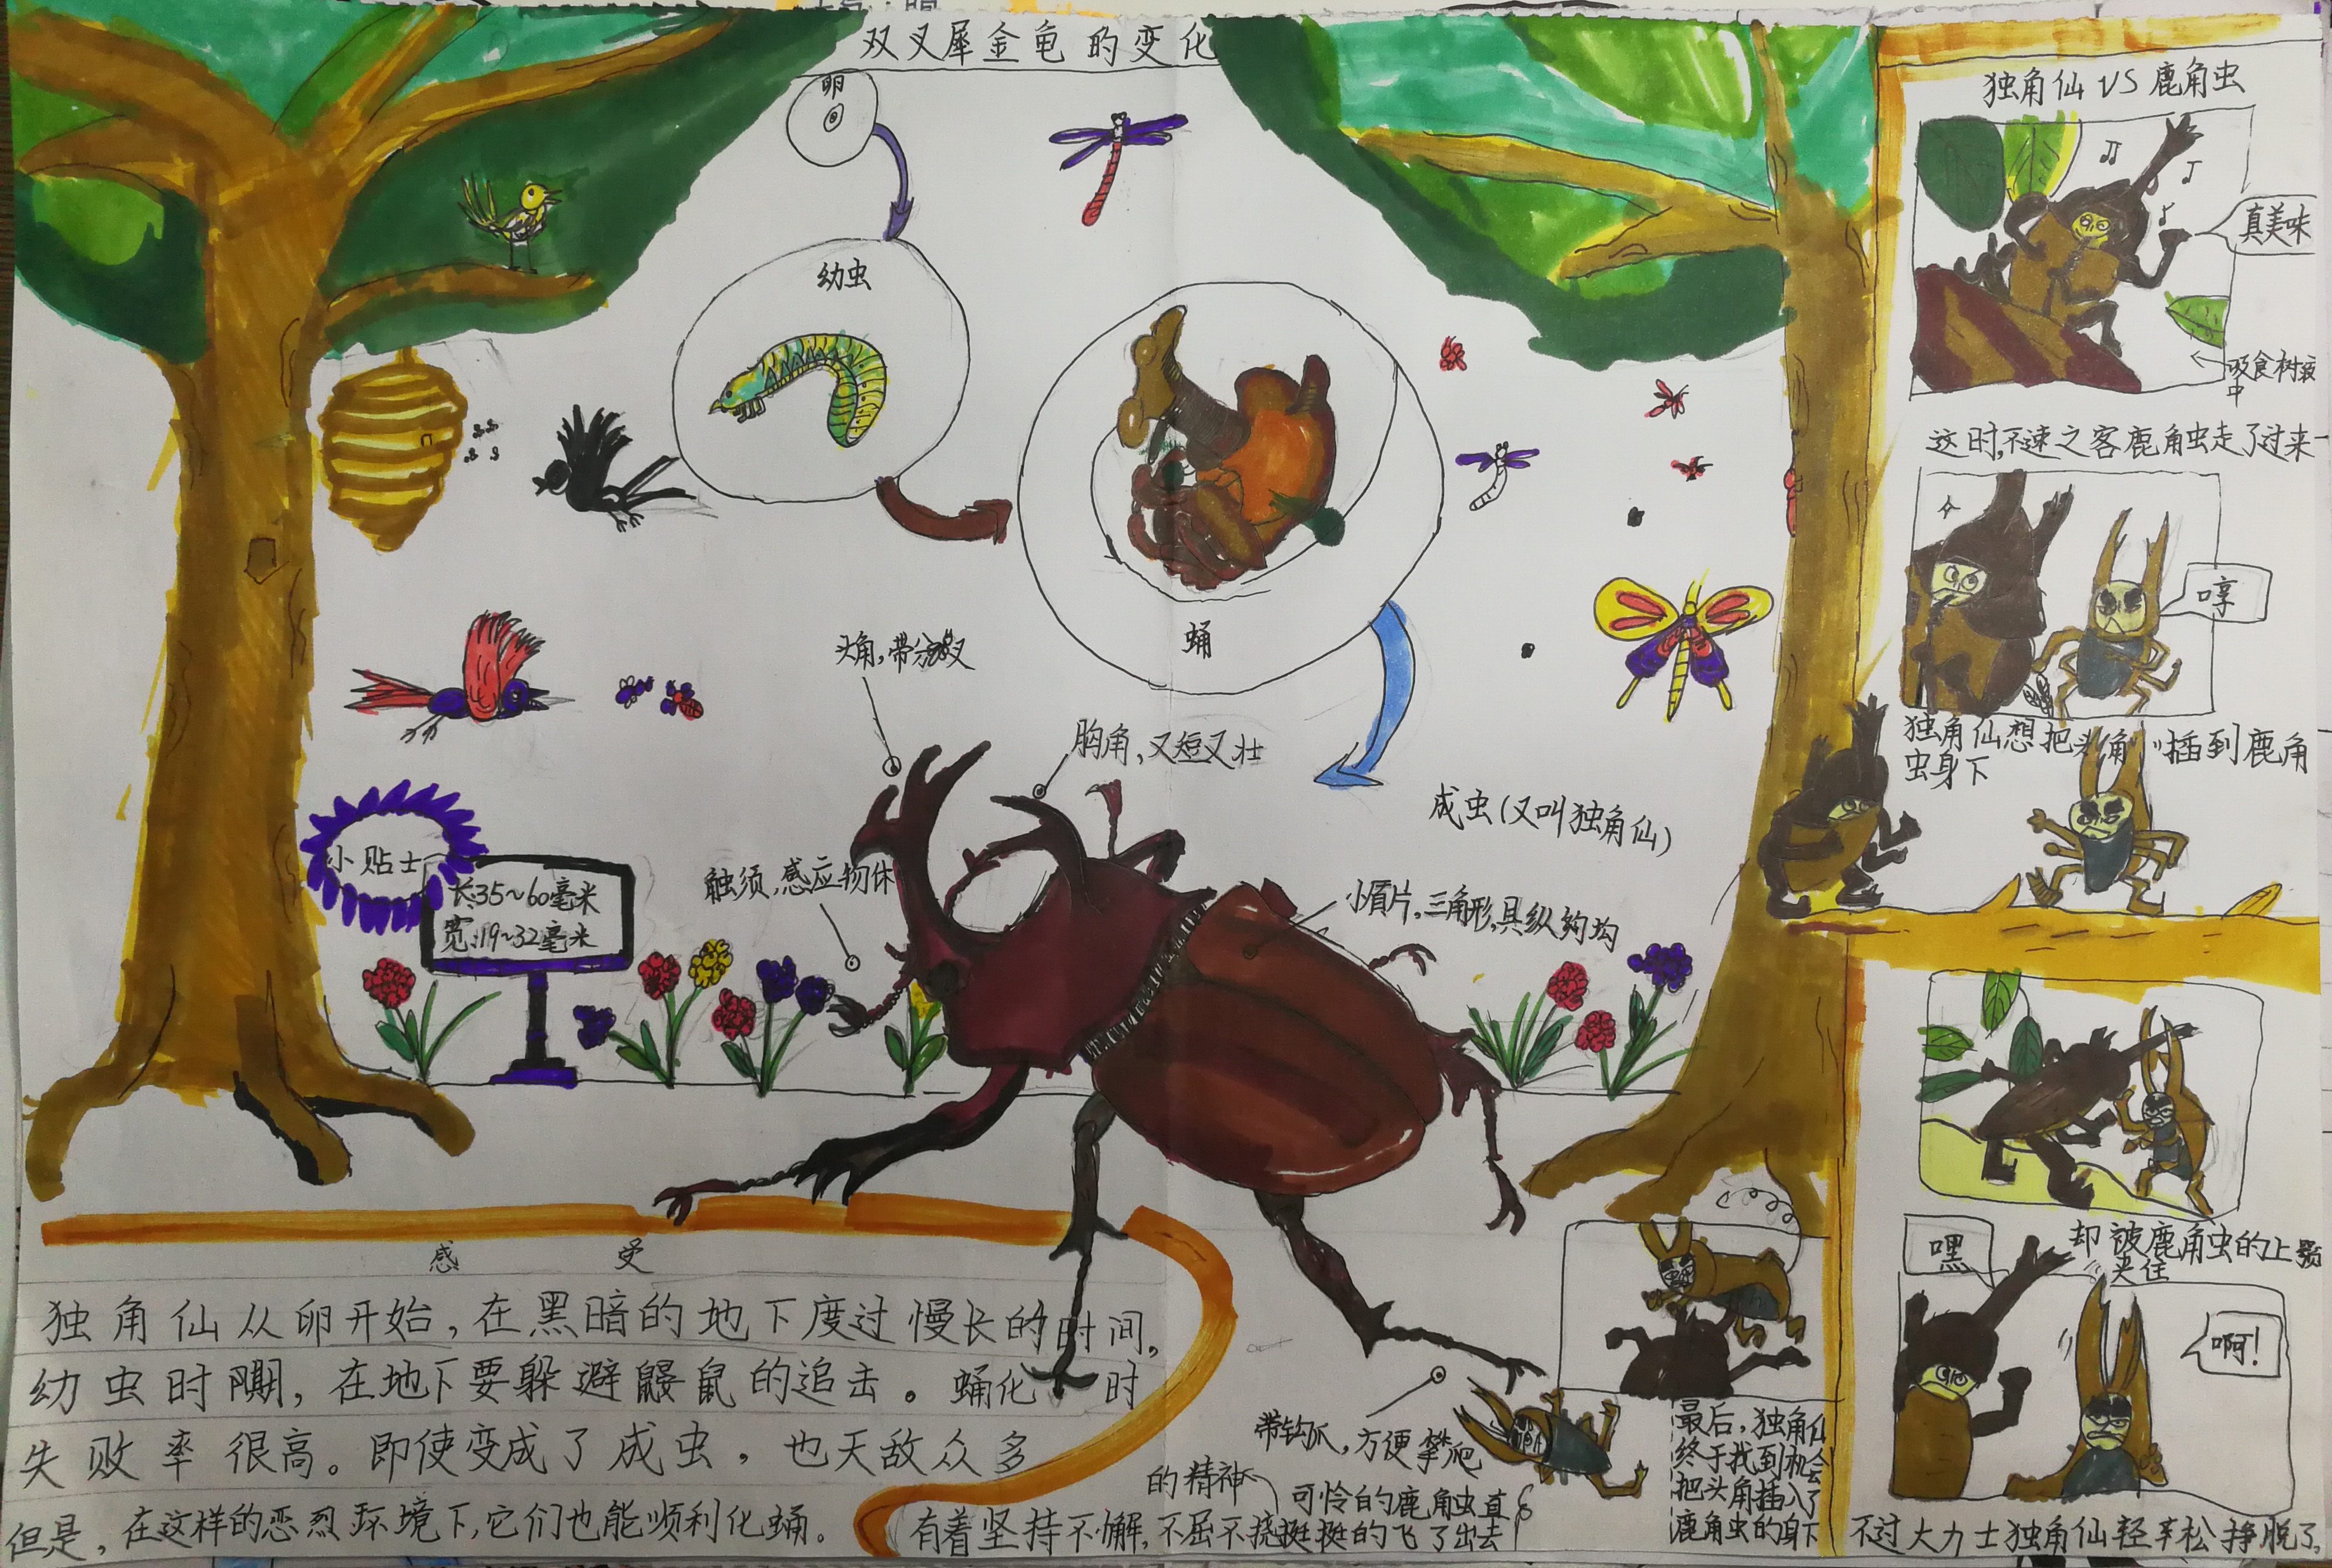 双叉犀金龟的变化
卵
幼虫
蛹
成虫(又叫独角仙)
头角,带分叉
胸角,又短又壮
触须,感应物体
小盾片,三角形,具纵
带钩爪,方便攀爬
小贴士
长:35~60毫米
宽:19~32毫米
感受
独角仙从卵开始,在黑暗的地下度过慢长的时间,
幼虫时期,在地下要躲避鼹鼠的追击。蛹化时
失败率很高。即使变成了成虫,也天敌众多
但是,在这样的恶烈环境下,它们也能顺利化蛹。
有着坚持不懈,不屈不挠
的精神
独角仙VS鹿角虫
真美味
吸食树液
中
这时,不速之客鹿角虫走了过来
哼
独角仙想把头角插到鹿角
虫身下
却被鹿角虫的上颚
夹住
嘿
啊!
不过大力士独角仙轻辛松挣脱了,
最后,独角仙
终于找到机会
把头角插入了
鹿角虫的身下
可怜的鹿角虫直
挺挺的飞了出去